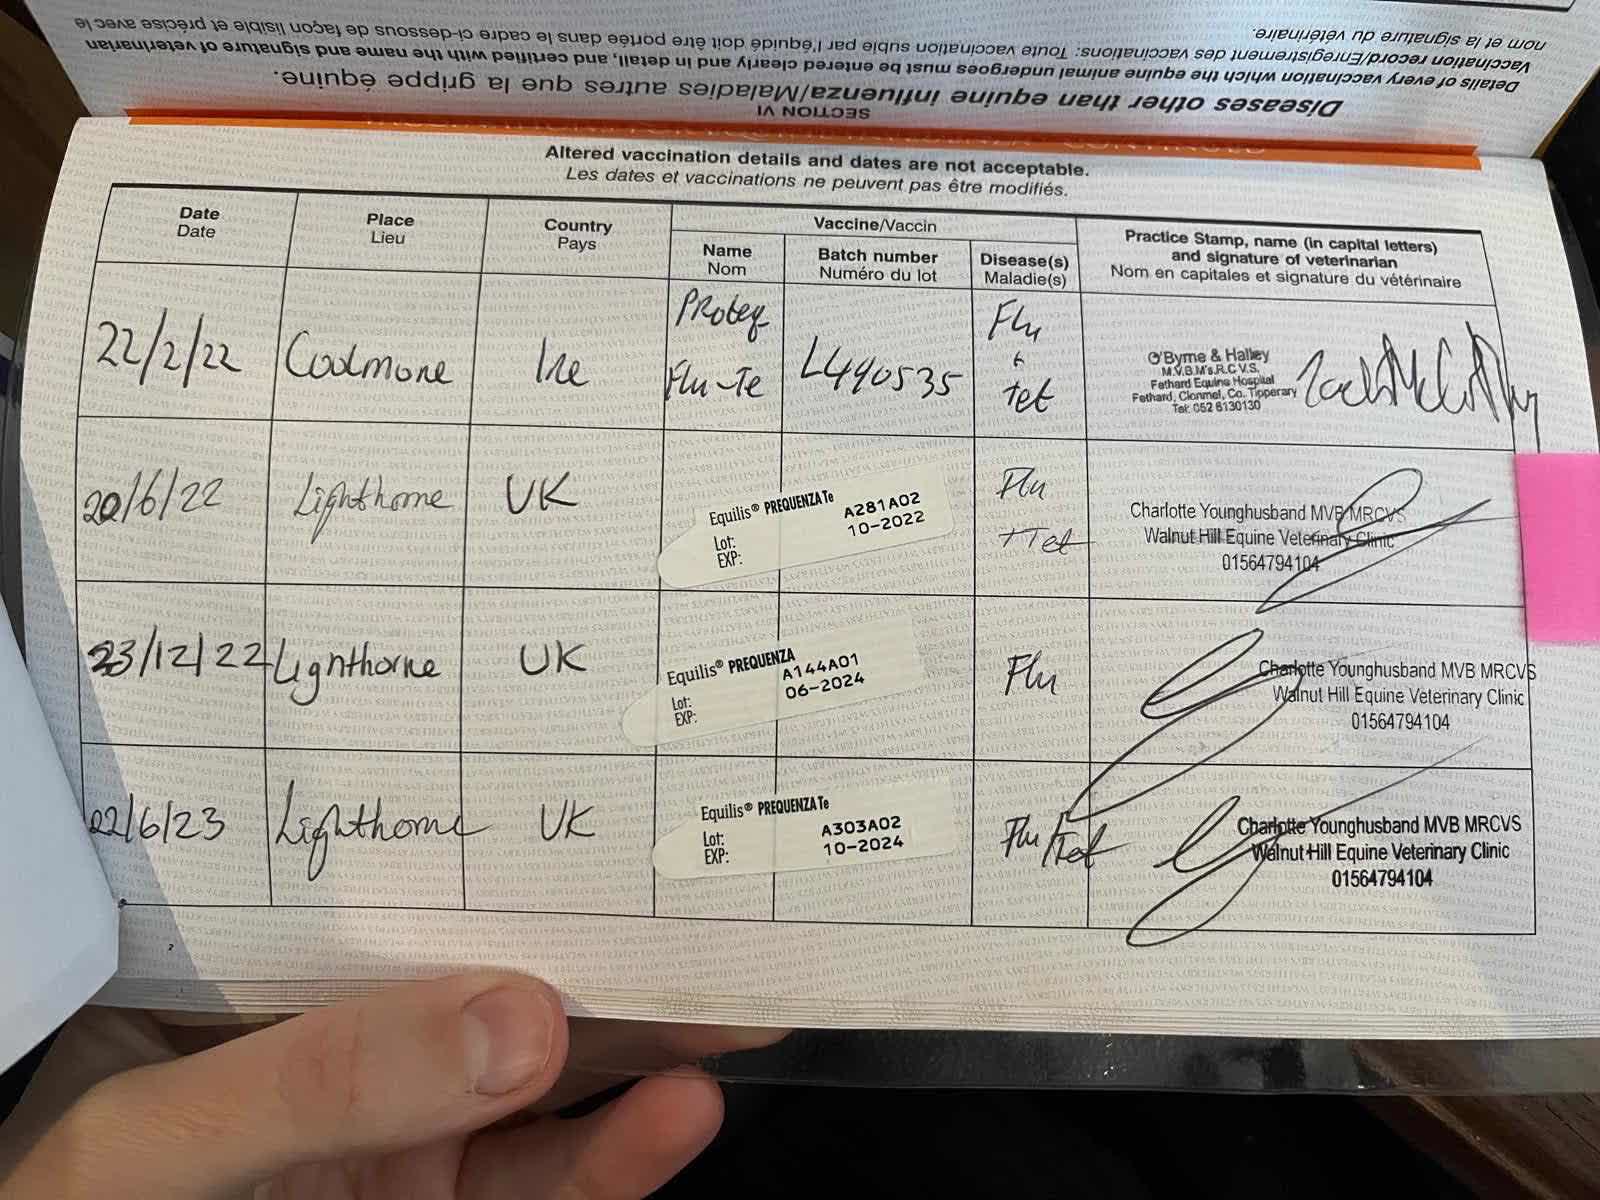 nom et la signature du vétérinaire.
Vaccination record/Enregistrement des vaccinations: Toute vaccination subie par l'équidé doit être portée dans le cadre ci-dessous de façon lisible et précise avec le
Details of every vaccination which the equine animal undergoes must be entered clearly and in detail, and certified with the name and signature of veterinarian
Diseases other than equine influenza/Maladies autres que la grippe équine.
SECTION VI
Altered vaccination details and dates are not acceptable.
Les dates et vaccinations ne peuvent pas être modifiés.
Date
Date
Place
Lieu
Country
Pays
Vaccine/Vaccin
Name
Nom
Batch number
Numéro du lot
Disease(s)
Maladie(s)
Practice Stamp, name (in capital letters)
and signature of veterinarian
Nom en capitales et signature du vétérinaire
22/2/22
Coolmore
Ire
Proteq
Flu-Te
L490535
Flu
&
Tet
O'Byrne & Halley
M.V.B.M's.R.C.V.S.
Fethard Equine Hospital
Fethard, Clonmel, Co. Tipperary
Tel: 052 6130130
20/6/22
Lighthorne
UK
Equilis® PREQUENZA Te
Lot: A281A02
EXP: 10-2022
Flu
+Tet
Charlotte Younghusband MVB MRCVS
Walnut Hill Equine Veterinary Clinic
01564794104
23/12/22
Lighthorne
UK
Equilis® PREQUENZA
Lot: A144A01
EXP: 06-2024
Flu
Charlotte Younghusband MVB MRCVS
Walnut Hill Equine Veterinary Clinic
01564794104
22/6/23
Lighthorne
UK
Equilis® PREQUENZA Te
Lot: A303A02
EXP: 10-2024
Flu/Tet
Charlotte Younghusband MVB MRCVS
Walnut Hill Equine Veterinary Clinic
01564794104